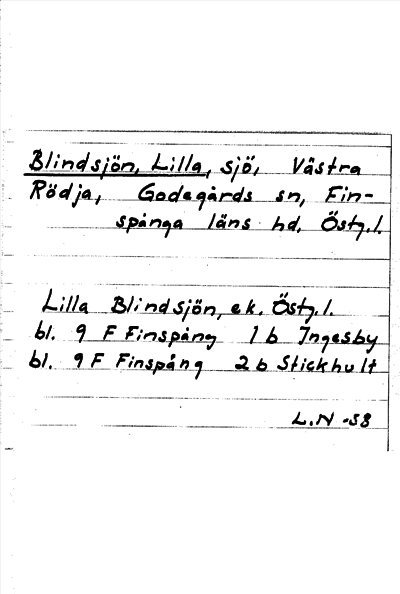 Blindsjön, Lilla, sjö, Västra
Rödja, Godegårds sn, Fin-
spånga läns hd. Östg.l.
Lilla Blindsjön, ek. Östg.l.
bl. 9 F Finspång 1 b Ingesby
bl. 9 F Finspång 2 b Stickhult
L.N -58